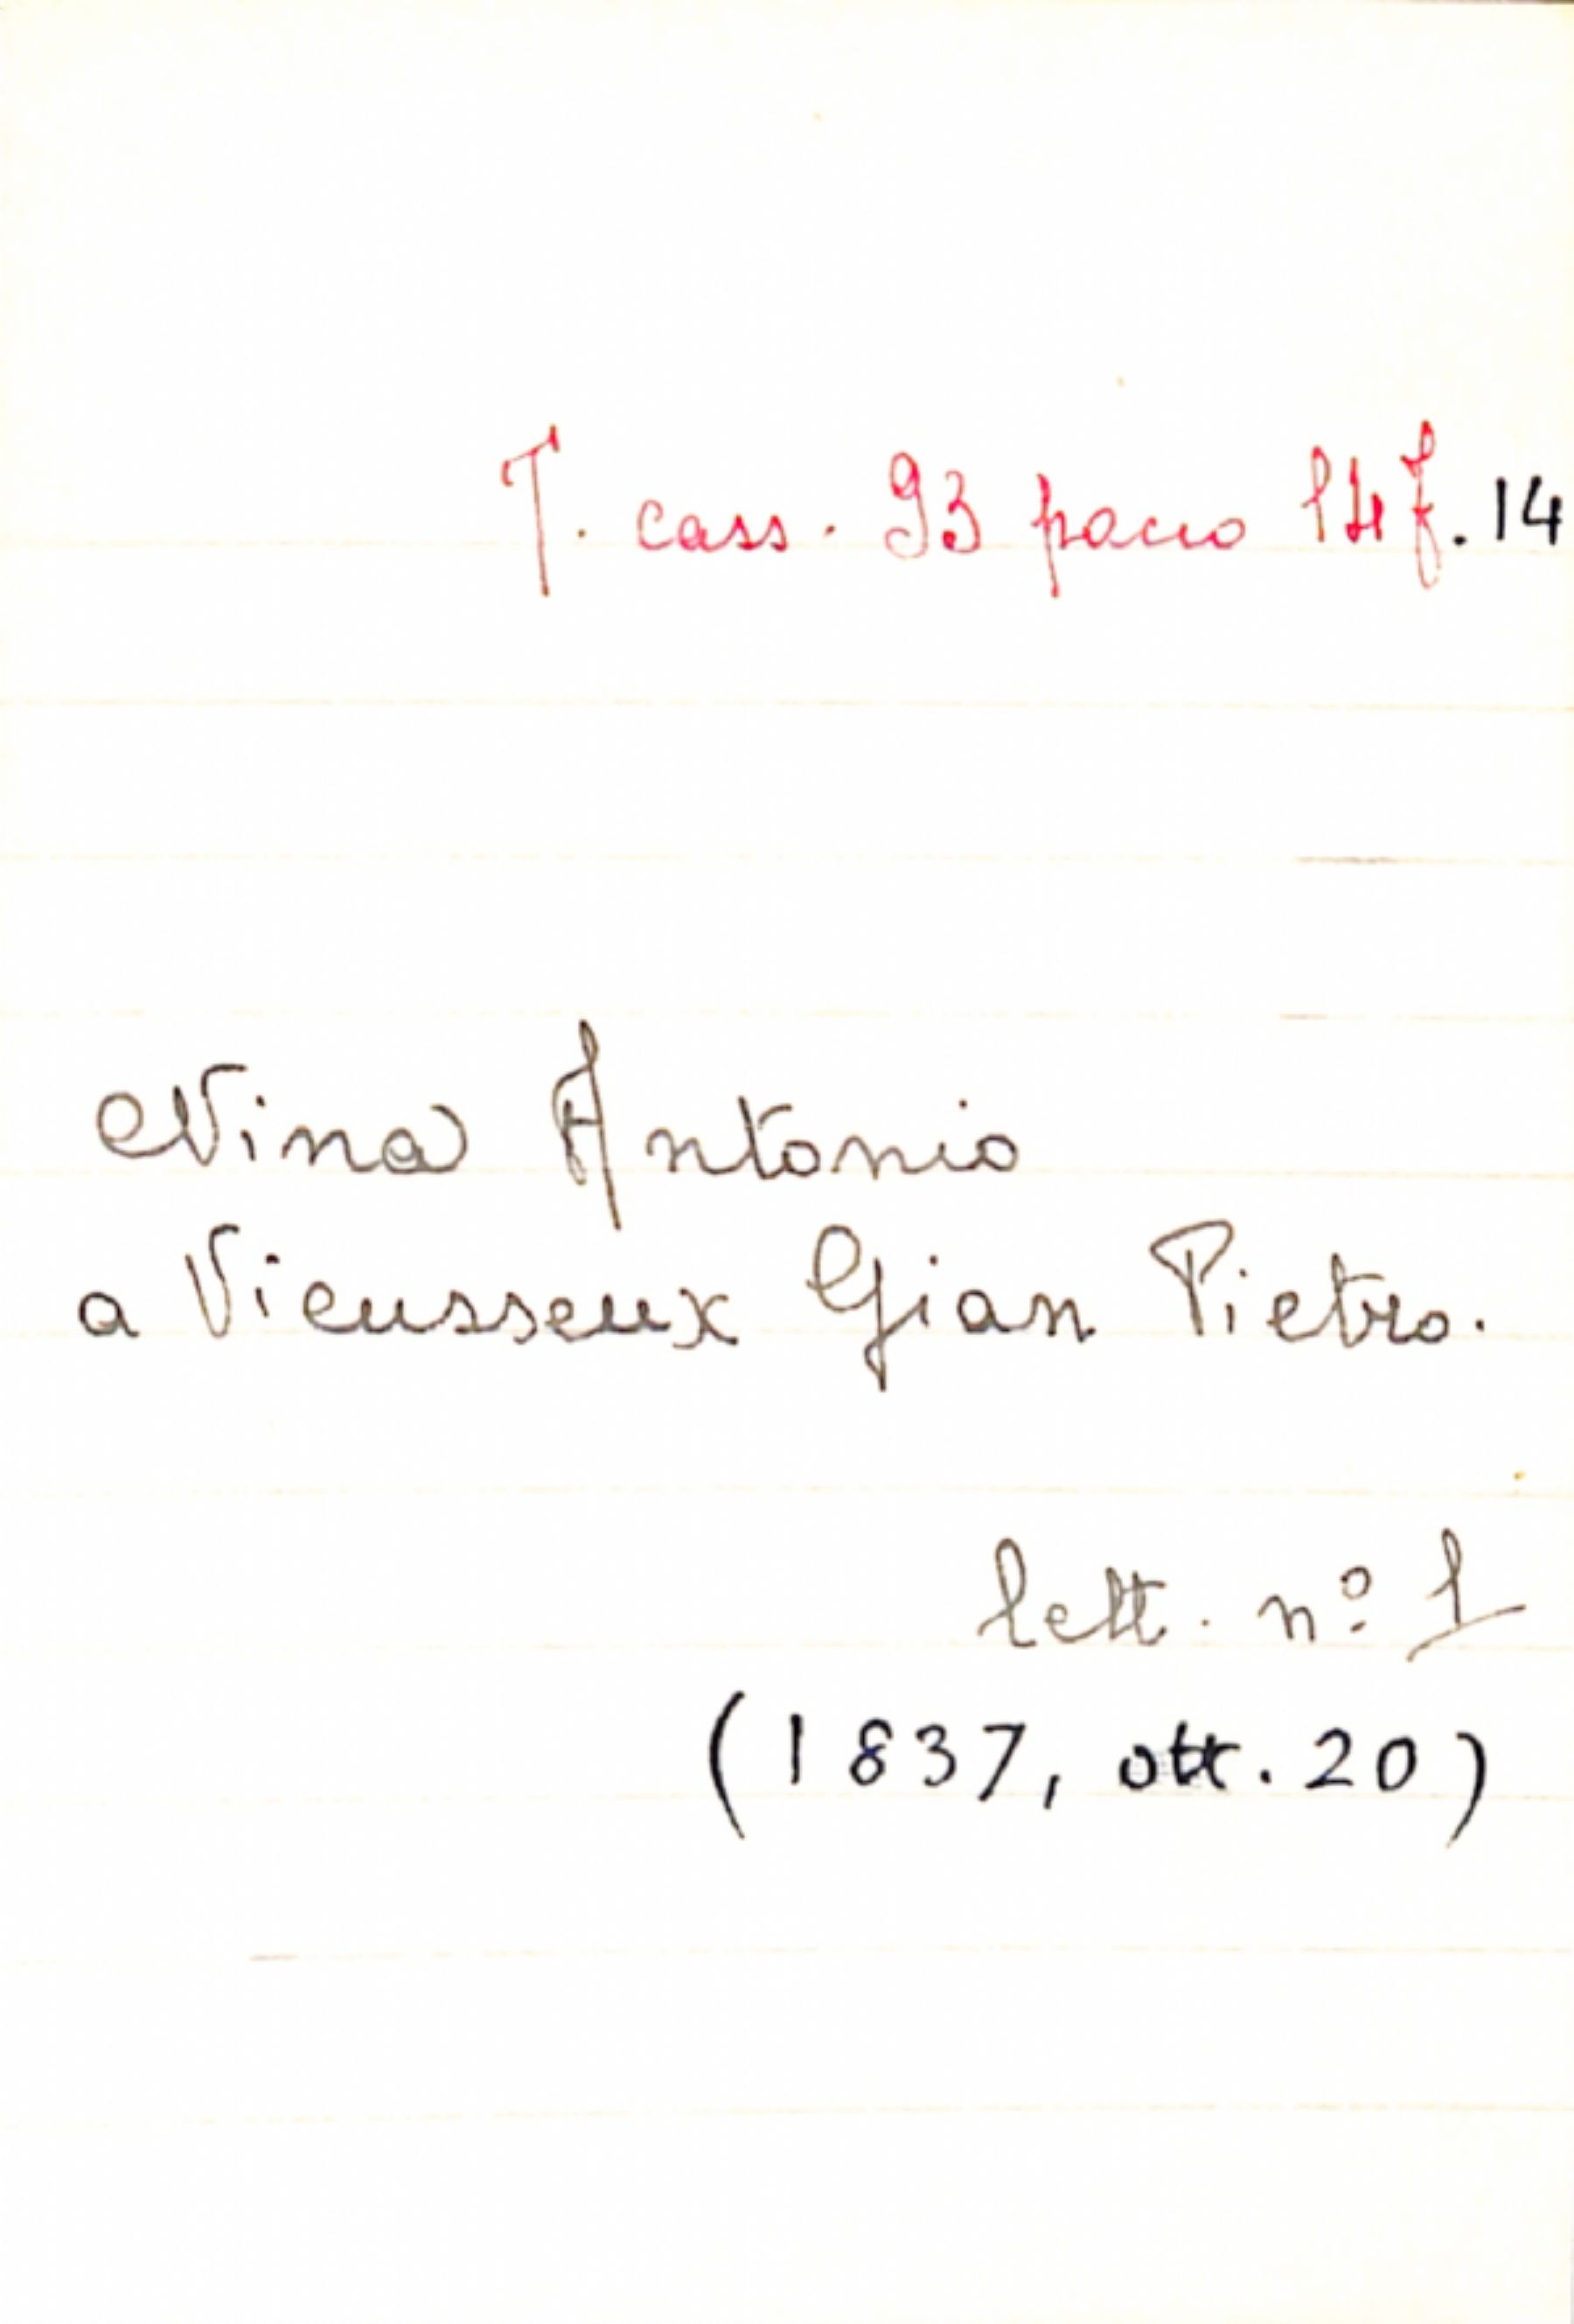 T. cass. 93 pacco 14 f. 14
Nina Antonio
a Vieusseux Gian Pietro.
lett. nº 1
(1837, ott. 20)